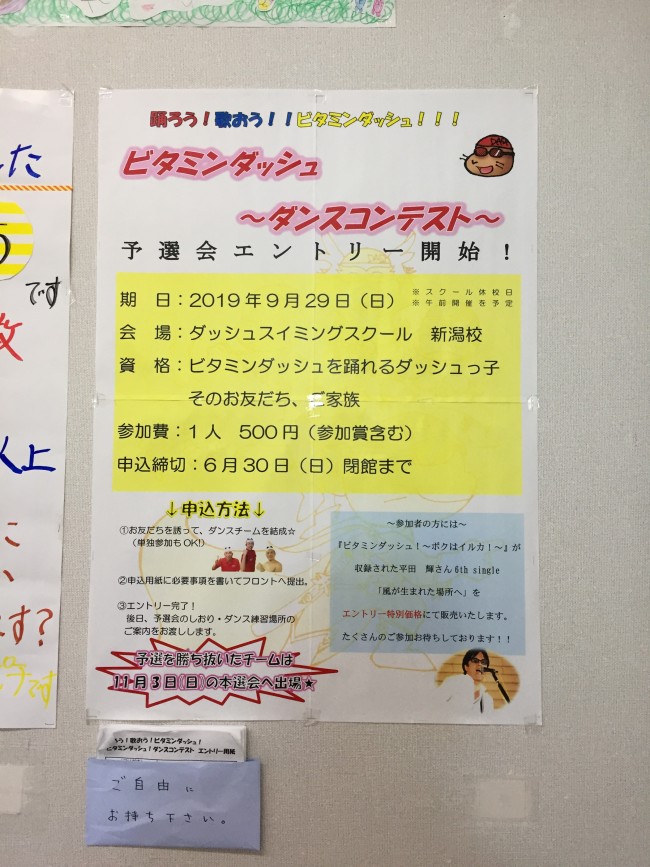 踊ろう！歌おう！！ビタミンダッシュ！！！
ビタミンダッシュ
～ダンスコンテスト～
予選会エントリー開始！
期　日：2019年9月29日（日）
※スクール休校日
※午前開催を予定
会　場：ダッシュスイミングスクール　新潟校
資　格：ビタミンダッシュを踊れるダッシュっ子
そのお友だち、ご家族
参加費：1人　500円（参加賞含む）
申込締切：6月30日（日）閉館まで
↓申込方法↓
①お友だちを誘って、ダンスチームを結成☆
（単独参加もOK!）
②申込用紙に必要事項を書いてフロントへ提出。
③エントリー完了！
後日、予選会のしおり・ダンス練習場所の
ご案内をお渡しします。
予選を勝ち抜いたチームは
11月3日(日)の本選会へ出場★
～参加者の方には～
『ビタミンダッシュ！～ボクはイルカ！～』が
収録された平田　輝さん6th single
「風が生まれた場所へ」を
エントリー特別価格にて販売いたします。
たくさんのご参加お待ちしております！！
った
です
以上
に
、
ます？
です
ろう！歌おう！ビタミンダッシュ！
ビタミンダッシュ！ダンスコンテスト　エントリー用紙
ご自由に
お持ち下さい。